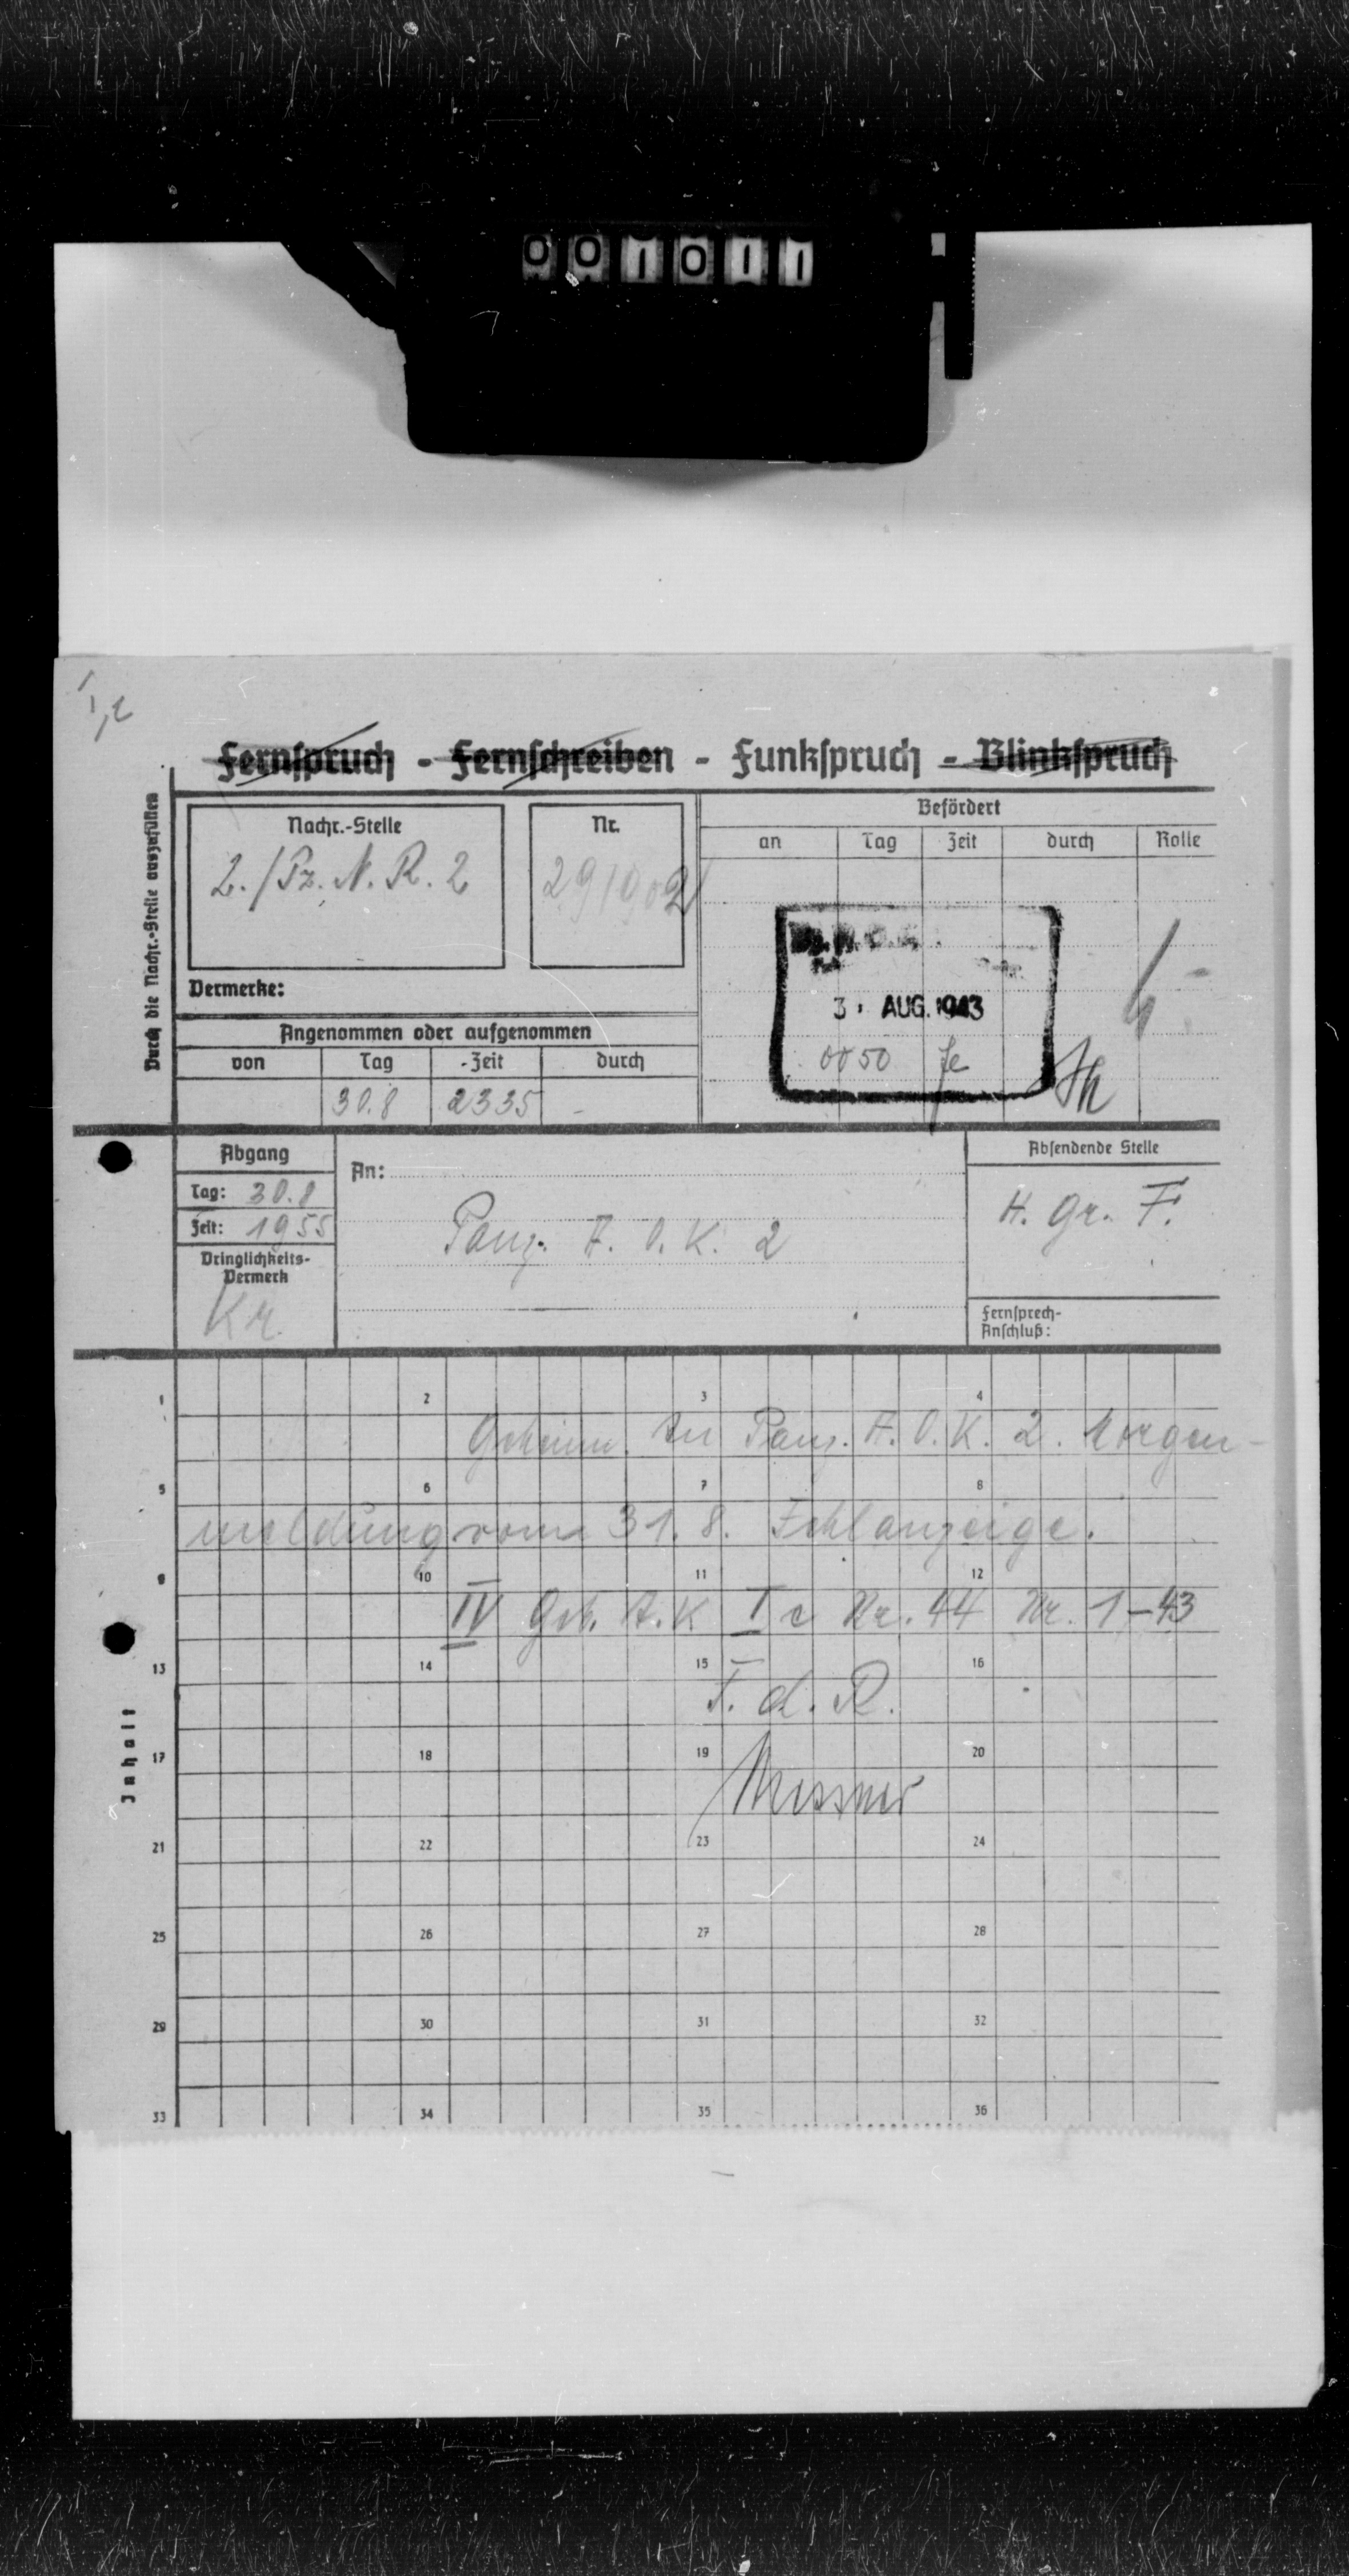 001011
I,c
Fernspruch - Fernschreiben - Funkspruch - Blinkspruch
Durch die Nachr.-Stelle auszufüllen
Nachr.-Stelle
2./Pz. N. R. 2
Nr.
Befördert
an Tag Zeit durch Rolle
3 AUG. 1943
0050
Vermerke:
Angenommen oder aufgenommen
von Tag Zeit durch
30.8 2335 -
Abgang
Tag: 30.8
Zeit: 1955
Dringlichkeits-
Vermerk
Kr.
An:
Panz. A. O. K. 2
Absendende Stelle
H. Gr. F.
Fernsprech-
Anschluß:
Inhalt
1 2 3 4
Geheim. An Panz. A. O. K. 2. Morgen-
5 6 7 8
meldung vom 31. 8. Fehlanzeige.
9 10 11 12
Geb. A. K I c Nr. 44 Nr. 1-43
13 14 15 16
F. d. R.
17 18 19 20
21 22 23 24
25 26 27 28
29 30 31 32
33 34 35 36